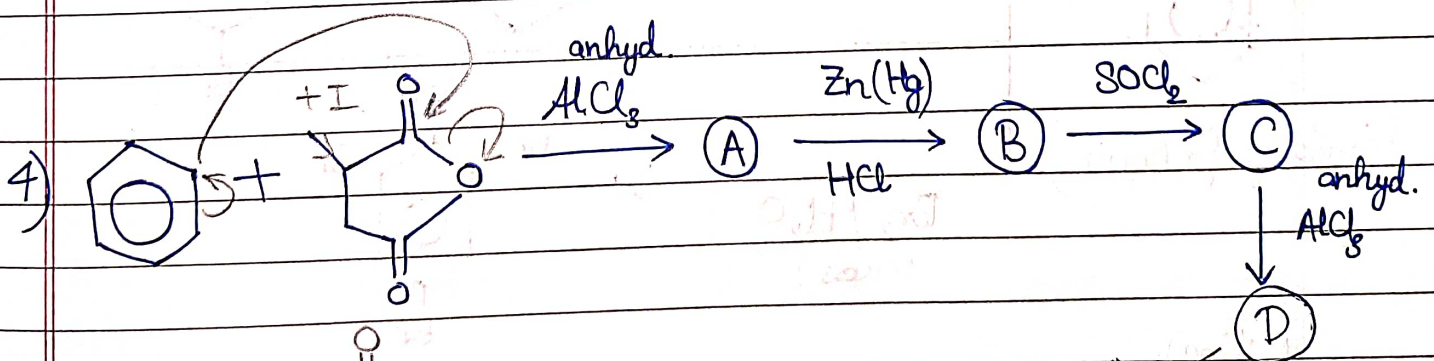 4) + +I O O O anhyd. AlCl₃ A Zn(Hg) HCl B SOCl₂ C
anhyd. AlCl₃
D
O